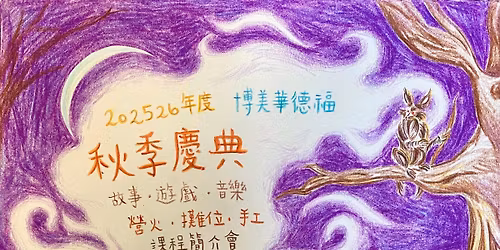 202526年度 博美華德福
秋季慶典
故事·遊戲·音樂
營火·攤位·手工
課程簡介會